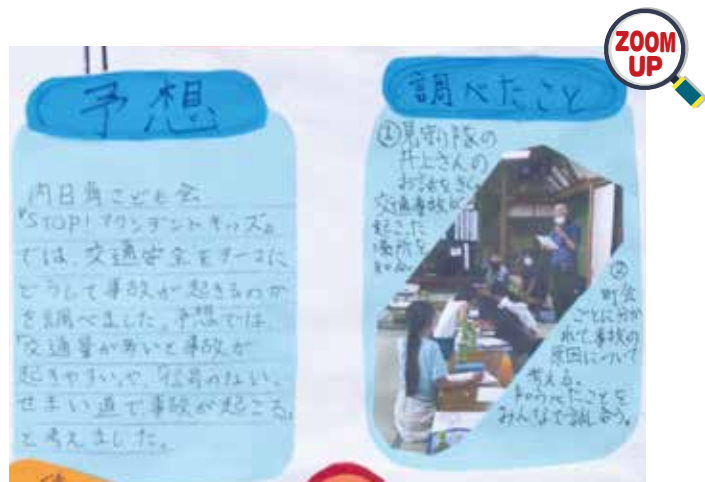 ZOOM
UP
予想
内日角こども会
"STOP!アクシデントキッズ"
では、交通安全をテーマに
どうして事故が起きるのか
を調べました。予想では、
「交通量が多いと事故が
起きやすい」や、「信号のない、
せまい道で事故が起こる」
と考えました。
調べたこと
①見守り隊の
井上さんの
お話をきく
交通事故が
起こった
場所を
②
町会
ごとに分か
れて事故の
原因について
考える。
ことを
みんなで話し合う。